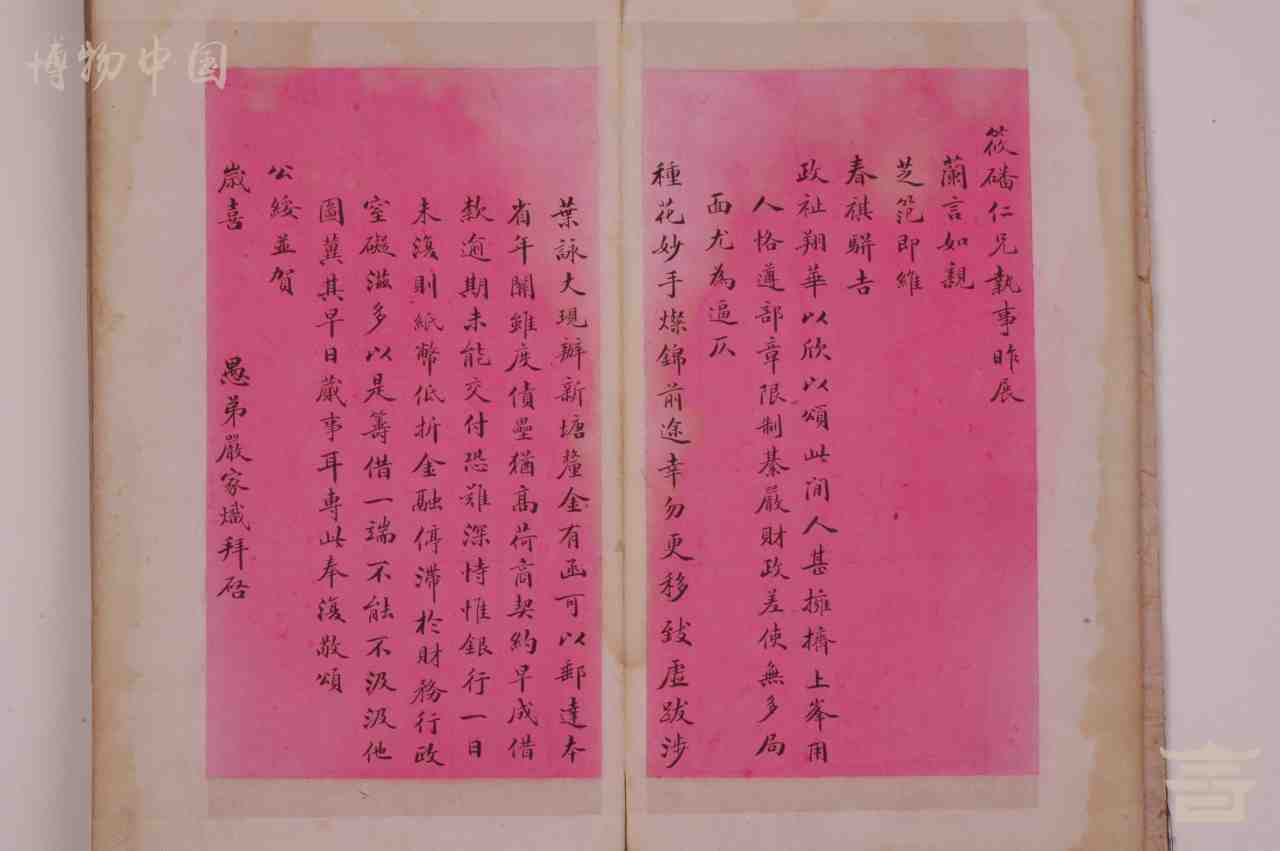 博物中国
筱磻仁兄執事昨展
蘭言如親
芝範即維
春祺駢吉
政祉翔華以欣以頌此間人甚擁擠上峯用
人恪遵部章限制綦嚴財政差使無多局
面尤為逼仄
種花妙手燦錦前途幸勿更移致虛跋涉
葉詠大現辦新塘釐金有函可以郵達本
省年關雖度債壘猶高荷商契約早成借
款逾期未能交付恐難深恃惟銀行一日
未復則紙幣低折金融停滯於財務行政
窒礙滋多以是籌借一端不能不汲汲他
圖冀其早日蕆事耳專此奉復敬頌
公綏並賀
歲喜 愚弟嚴家熾拜啓